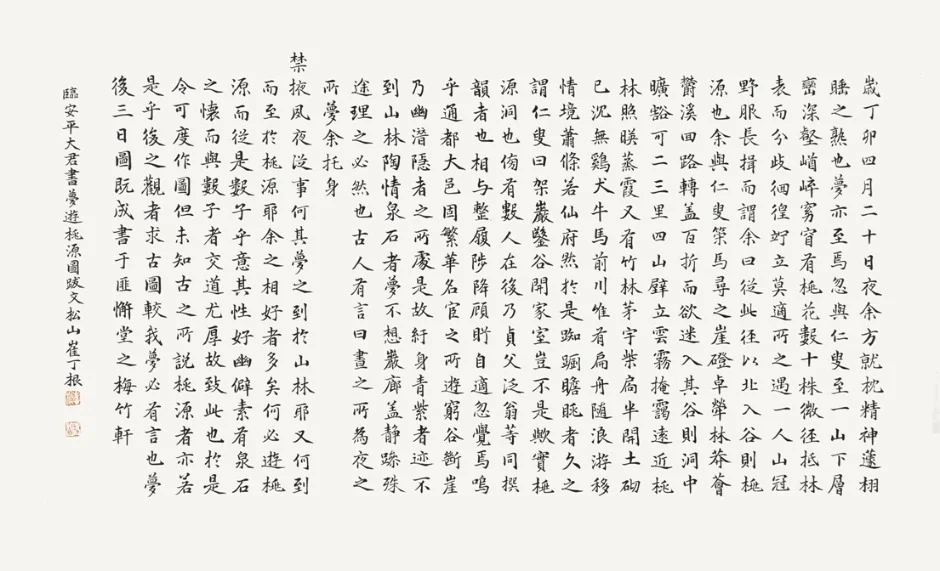 歲丁卯四月二十日夜余方就枕精神蘧栩
睡之熟也夢亦至焉忽與仁叟至一山下層
巒深壑崷崒窈窅有桃花數十株微徑抵林
表而分歧徊徨竚立莫適所之遇一人山冠
野服長揖而謂余曰從此徑以北入谷則桃
源也余與仁叟策馬尋之崖磴卓犖林莽薈
鬱溪回路轉蓋百折而欲迷入其谷則洞中
曠豁可二三里四山壁立雲霧掩靄遠近桃
林照暎蒸霞又有竹林茅宇柴扃半開土砌
已沉無鷄犬牛馬前川惟有扁舟隨浪游移
情境蕭條若仙府然於是踟躕瞻眺者久之
謂仁叟曰架巖鑿谷開家室豈不是歟實桃
源洞也傍有數人在後乃貞父泛翁等同撰
韻者也相与整履陟降顧眄自適忽覺焉嗚
乎通都大邑固繁華名宦之所遊窮谷斷崖
乃幽潛隱者之所處是故紆身青紫者迹不
到山林陶情泉石者夢不想巖廊蓋静躁殊
途理之必然也古人有言曰晝之所為夜之
所夢余托身
禁掖夙夜從事何其夢之到於山林耶又何到
而至於桃源耶余之相好者多矣何必遊桃
源而從是數子乎意其性好幽僻素有泉石
之懷而與數子者交道尤厚故致此也於是
令可度作圖但未知古之所說桃源者亦若
是乎後之觀者求古圖較我夢必有言也夢
後三日圖既成書于匪懈堂之梅竹軒
臨安平大君書夢遊桃源圖跋文松山崔丁根